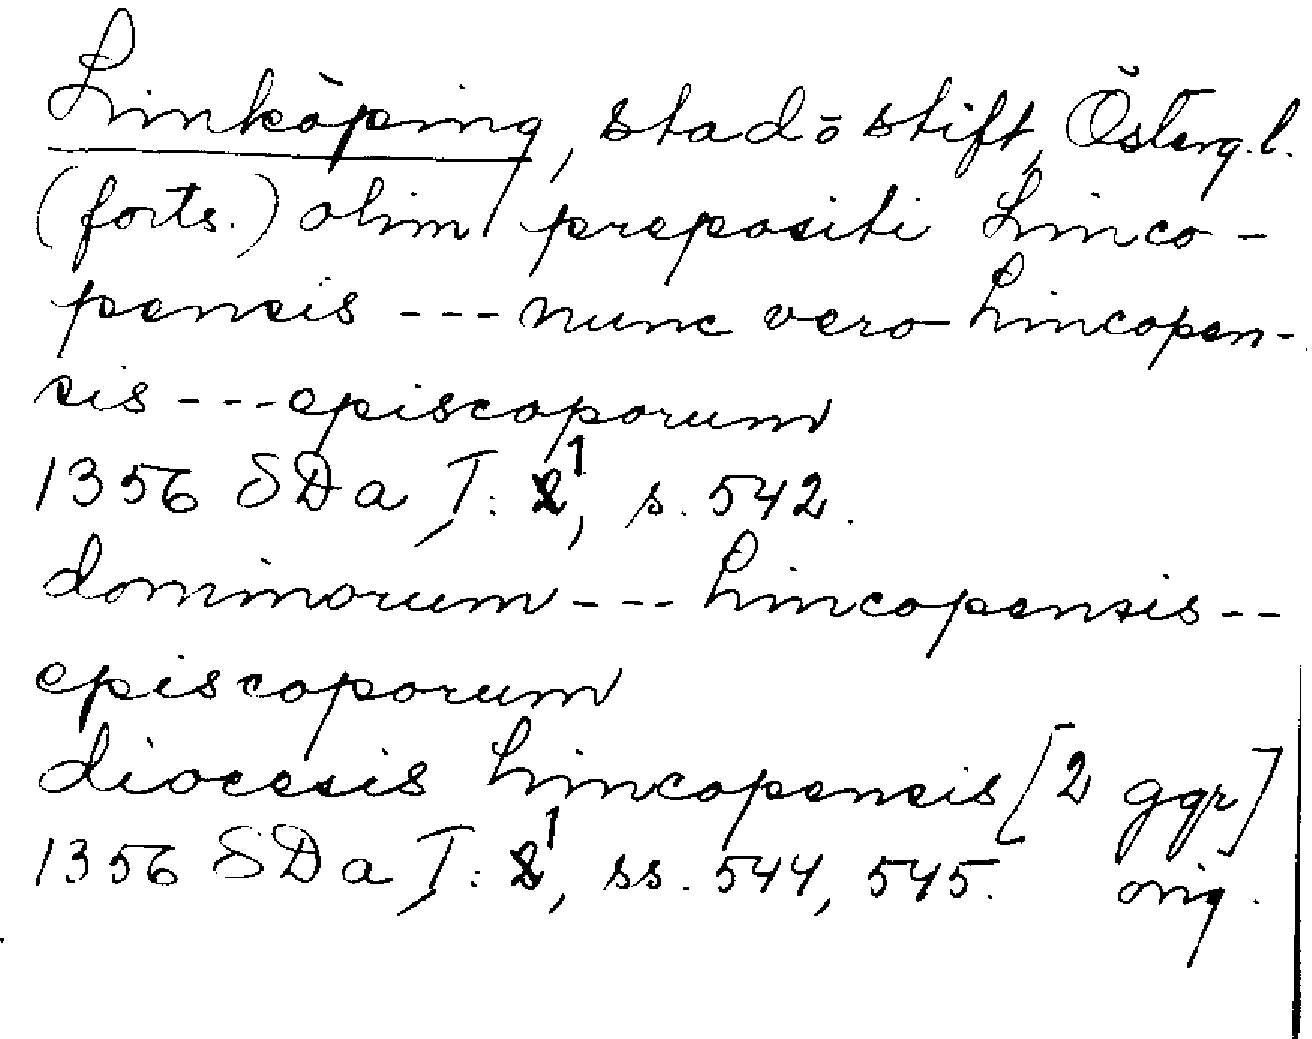 Linköping, stad o stift, Österg.l.
(forts.) olim prepositi Linco-
pensis --- nunc vero Lincopen-
sis --- episcoporum
1356 SDa I: 1, s. 542.
dominorum --- Lincopensis --
episcoporum
diocesis Lincopensis [2 ggr]
1356 SDa I: 1, ss. 544, 545. orig.